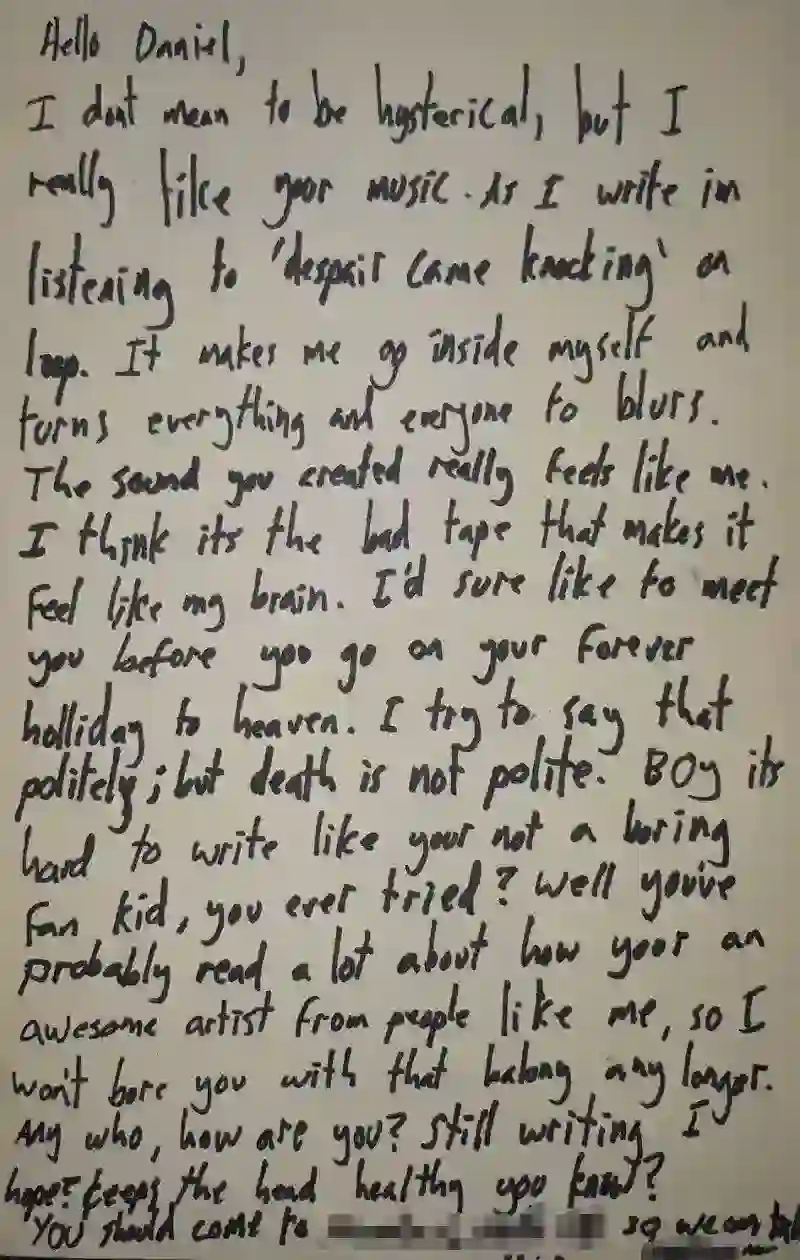 Hello Daniel,
I dont mean to be hysterical, but I
really like your music. As I write im
listening to 'despair came knocking' on
loop. It makes me go inside myself and
turns everything and everyone to blurs.
The sound you created really feels like me.
I think its the bad tape that makes it
feel like my brain. I'd sure like to meet
you before you go on your forever
holliday to heaven. I try to say that
politely; but death is not polite. Boy its
hard to write like your not a boring
fan kid, you ever tried? Well youve
probably read a lot about how your an
awesome artist from people like me, so I
won't bore you with that balony any longer.
Any who, how are you? Still writing I
hope? keeps the head healthy you know?
You should come to so we can